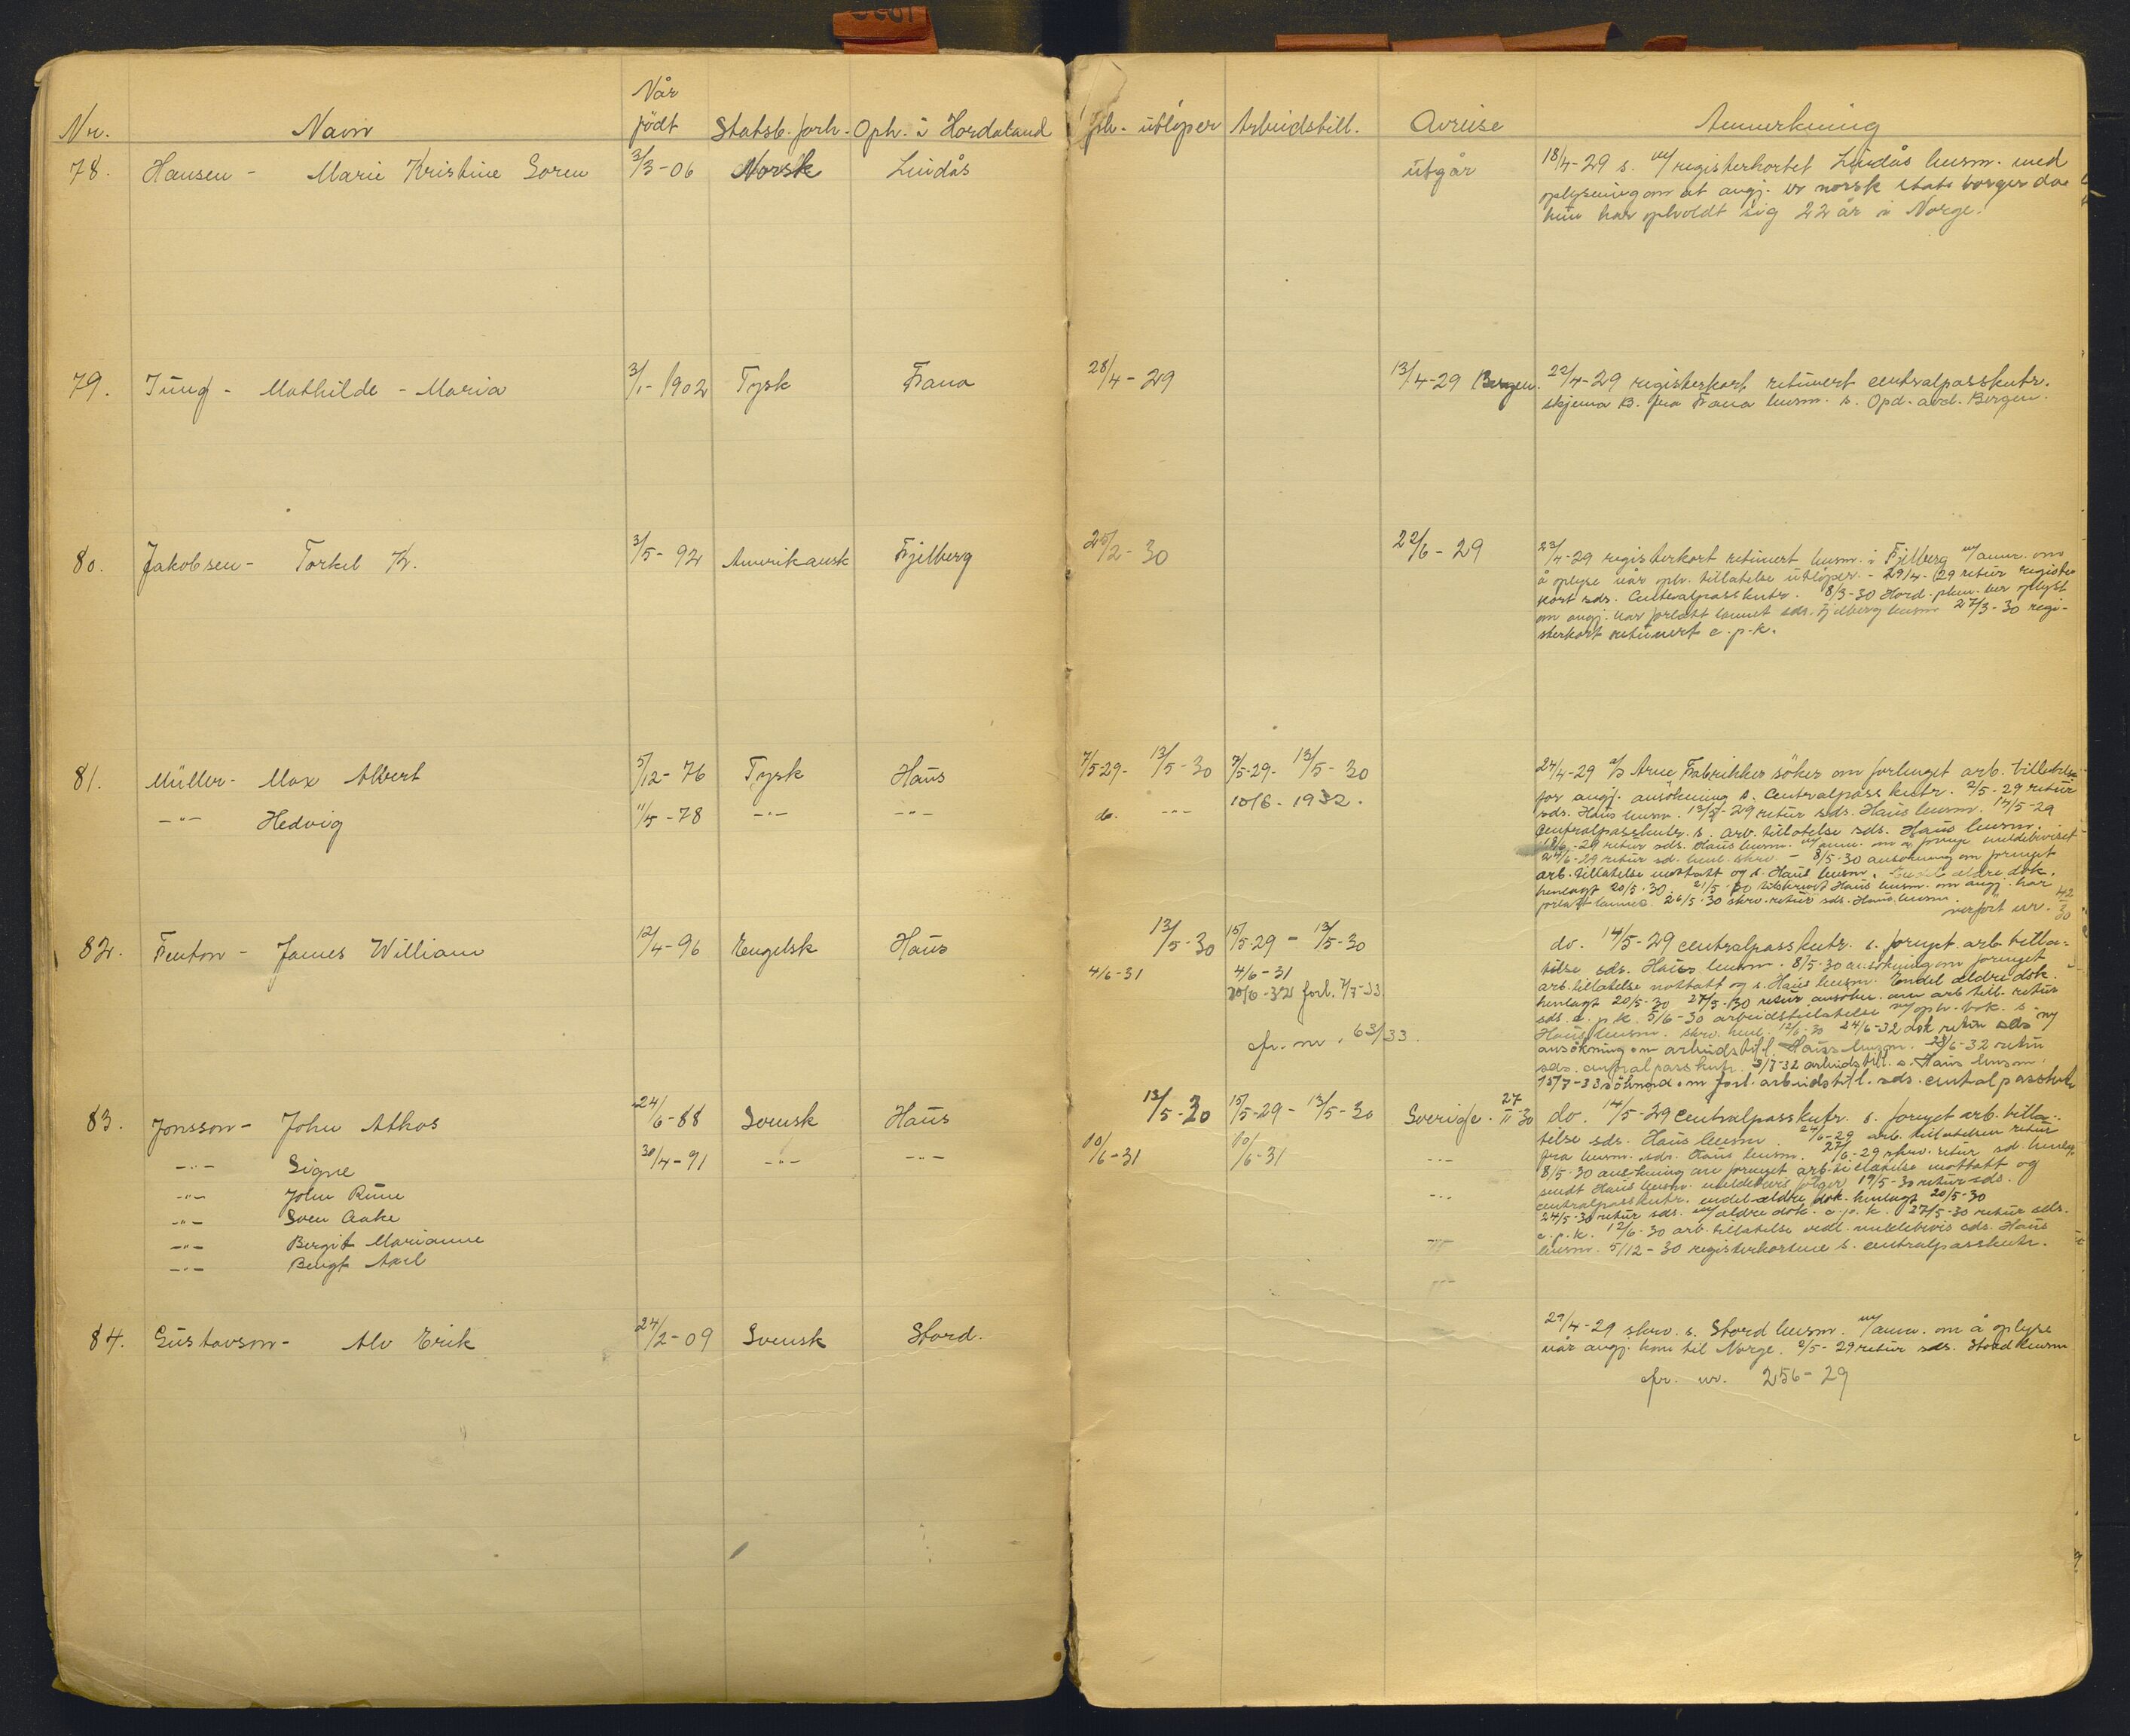 Nr. Navn Når
født Statsb. forh. Oph. i Hordaland oph. utløper Arbeidstill. Avreise Anmerkning
78. Hansen - Marie Kristine Soren 3/3-06 Norsk Lindås utgår 18/4-29 s. m/ registerkortet Lindås lensm. med
oplysning om at angj. er norsk statsborger da
hun har opholdt sig 22 år i Norge.
79. Jung - Mathilde - Maria 3/1-1902 Tysk Fana 28/4-29 13/4-29 Bergen. 22/4-29 registerkort returnert centralpasskntr.
skjema B. fra Fana lensm. s. Opd. avd. Bergen.
80. Jakobsen - Torkel K. 3/5-92 Amerikansk Fjelberg 25/2-30 22/6-29 23/4-29 registerkort returnert lensm. i Fjelberg m/ anm. om
å oplyse når oph. tillatelse utløper. - 29/4-29 retur register
kort sds. Centralpasskntr. 8/3-30 Hord. plkm. ber oplyst
om angj. har forlatt landet sds. Fjelberg lensm 27/3-30 regi-
sterkort returnert c.p.k.
81. Müller - Max Albert 5/12-76 Tysk Haus 7/5-29- 13/5-30 7/5-29- 13/5-30 24/4-29 a/s Arne Fabrikker søker om forlenget arb. tillatelse
-"- Hedvig 11/5-78 -"- -"- do. -"- 10/6-1932. for angj. ansøkning s. Centralpasskntr. 2/5-29 retur
sds. Haus lensm. 13/5-29 retur sds. Haus lensm. 14/5-29
Centralpasskntr. s. arb. tillatelse sds. Haus lensm.
18/6-29 retur sds. Haus lensm. m/ anm. om å fornye meldebeviset
24/6-29 retur sd. henl. skrv. - 8/5-30 ansøkning om fornyet
arb. tillatelse mottatt og s. Haus lensm. Endel ældre dok.
henlagt 20/5-30. 21/5-30 tilskrevet Haus lensm. om angj. har
forlatt landet 26/5-30 skrv. retur sds. Haus lensm.
overført nr. 42/30
82. Fenton - James William 12/4-96 Engelsk Haus 13/5-30 15/5-29 - 13/5-30 do. 14/5-29 centralpasskntr. s. fornyet arb. tilla-
4/6-31 4/6-31 telse sds. Haus lensm. 8/5-30 ansøkning om fornyet
20/6-32 forl. 7/7-33 arb. tillatelse mottatt og s. Haus lensm. Endel ældre dok.
henlagt 20/5-30 27/5-30 retur ansøkn. om arb. till. retur
sds. c.p.k. 5/6-30 arbeidstillatelse m/ oph. bok. s.
cfr. nr. 63/33. Haus lensm. skrv. henl. 12/6-30 24/6-32 dok retur sds m/
ansøkning om arbeidstill. Haus lensm. 28/6-32 retur
sds. centralpasskntr. 9/7-32 arbeidstill. s. Haus lensm.
15/7-33 søknad om forl. arbeidstill. sds. centralpasskntr
83. Jonsson - John Athos 24/6-88 Svensk Haus 13/5-30 15/5-29 - 13/5-30 Sverige. 27/11-30 do. 14/5-29 Centralpasskntr. s. fornyet arb. tilla-
-"- Signe 30/4-91 -"- -"- 10/6-31 10/6-31 -"- telse sds. Haus lensm. 24/6-29 arb. tillatelsen retur
-"- John Rune -"- fra lensm. sds. Haus lensm. 27/6-29 skrv. retur sd. henlagt
-"- Sven Aake 8/5-30 ansøkning om fornyet arb. tillatelse mottatt og
-"- Bergit Marianne -"- sendt Haus lensm. meldebevis følger 19/5-30 retur sds.
-"- Bengt Axel -"- centralpasskntr. endel ældre dok. henlagt 20/5-30
24/5-30 retur sds. m/ ældre dok. c.p.k. 27/5-30 retur sds.
c.p.k. 12/6-30 arb. tillatelse vedl. meldebevis sds. Haus
lensm. 5/12-30 registerkortene s. centralpasskntr.
84. Gustavson - Alv Erik 24/2-09 Svensk Stord. 29/4-29 skrv. s. Stord lensm. m/ anm. om å oplyse
når angj. kom til Norge. 6/5-29 retur sds. Stord lensm
cfr. nr. 256-29